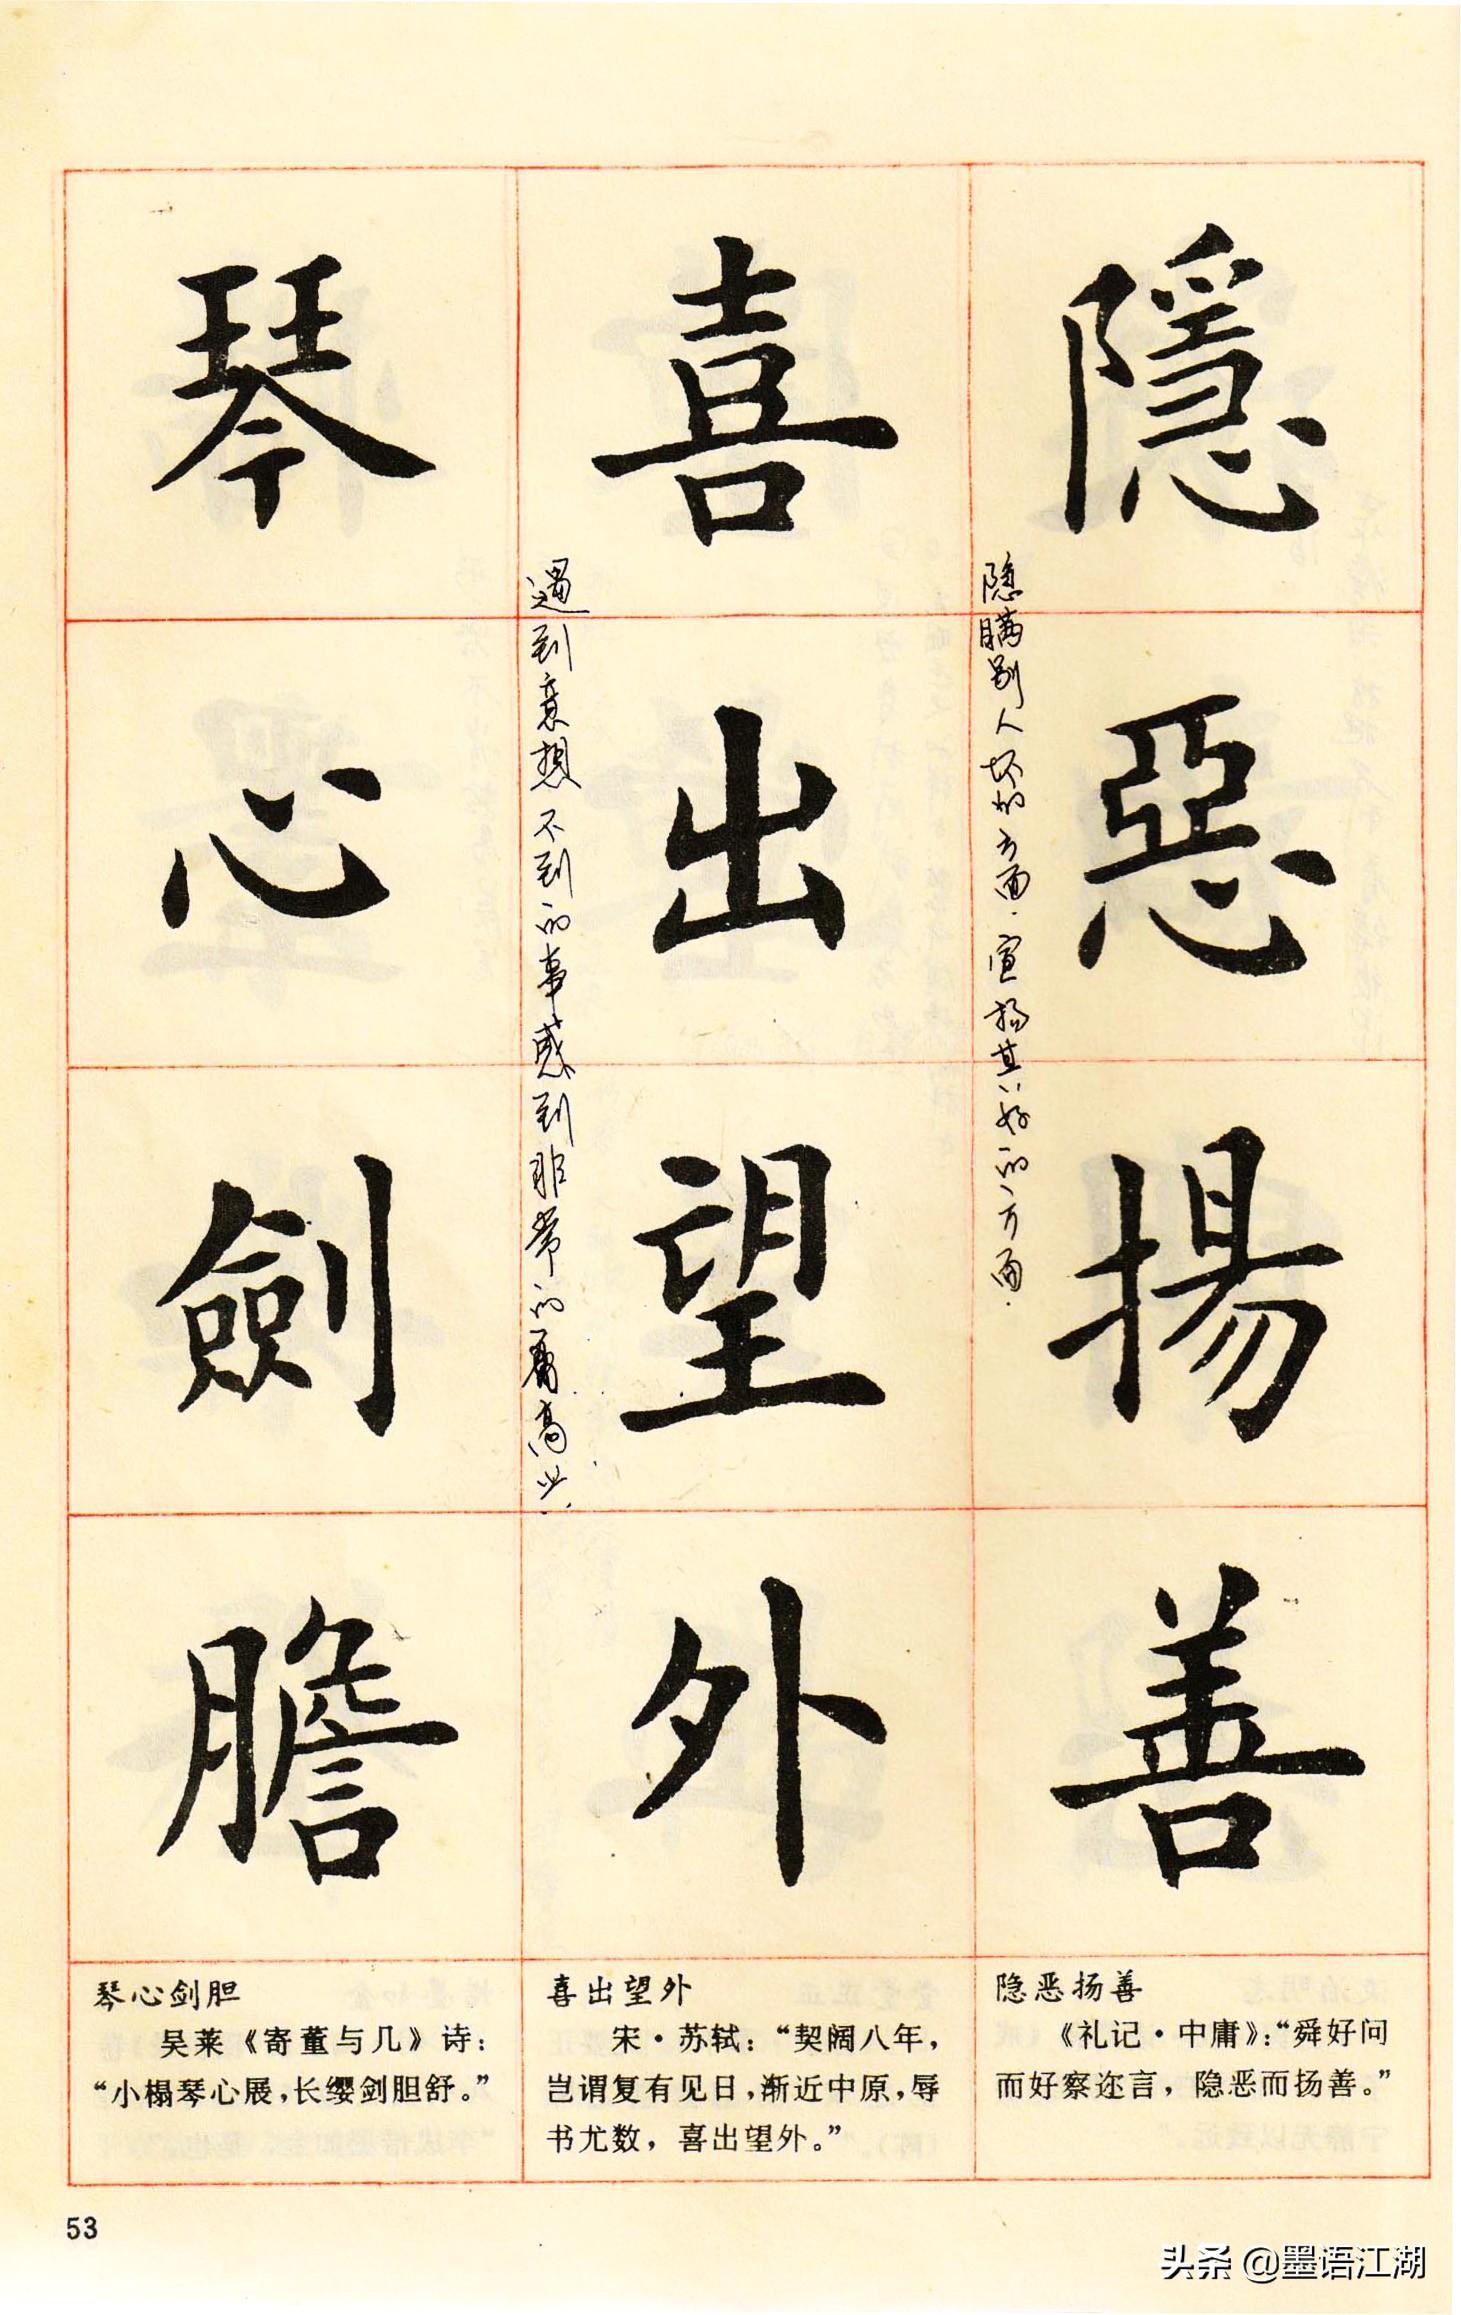 隱惡揚善
隐瞒别人坏的方面．宣扬其好的方面．
喜出望外
遇到意想不到的事感到非常的高兴．
琴心劍膽
隐恶扬善
《礼记·中庸》：“舜好问
而好察迩言，隐恶而扬善。”
喜出望外
宋·苏轼：“契阔八年，
岂谓复有见日，渐近中原，辱
书尤数，喜出望外。”
琴心剑胆
吴莱《寄董与几》诗：
“小榻琴心展，长缨剑胆舒。”
53
头条 @墨语江湖